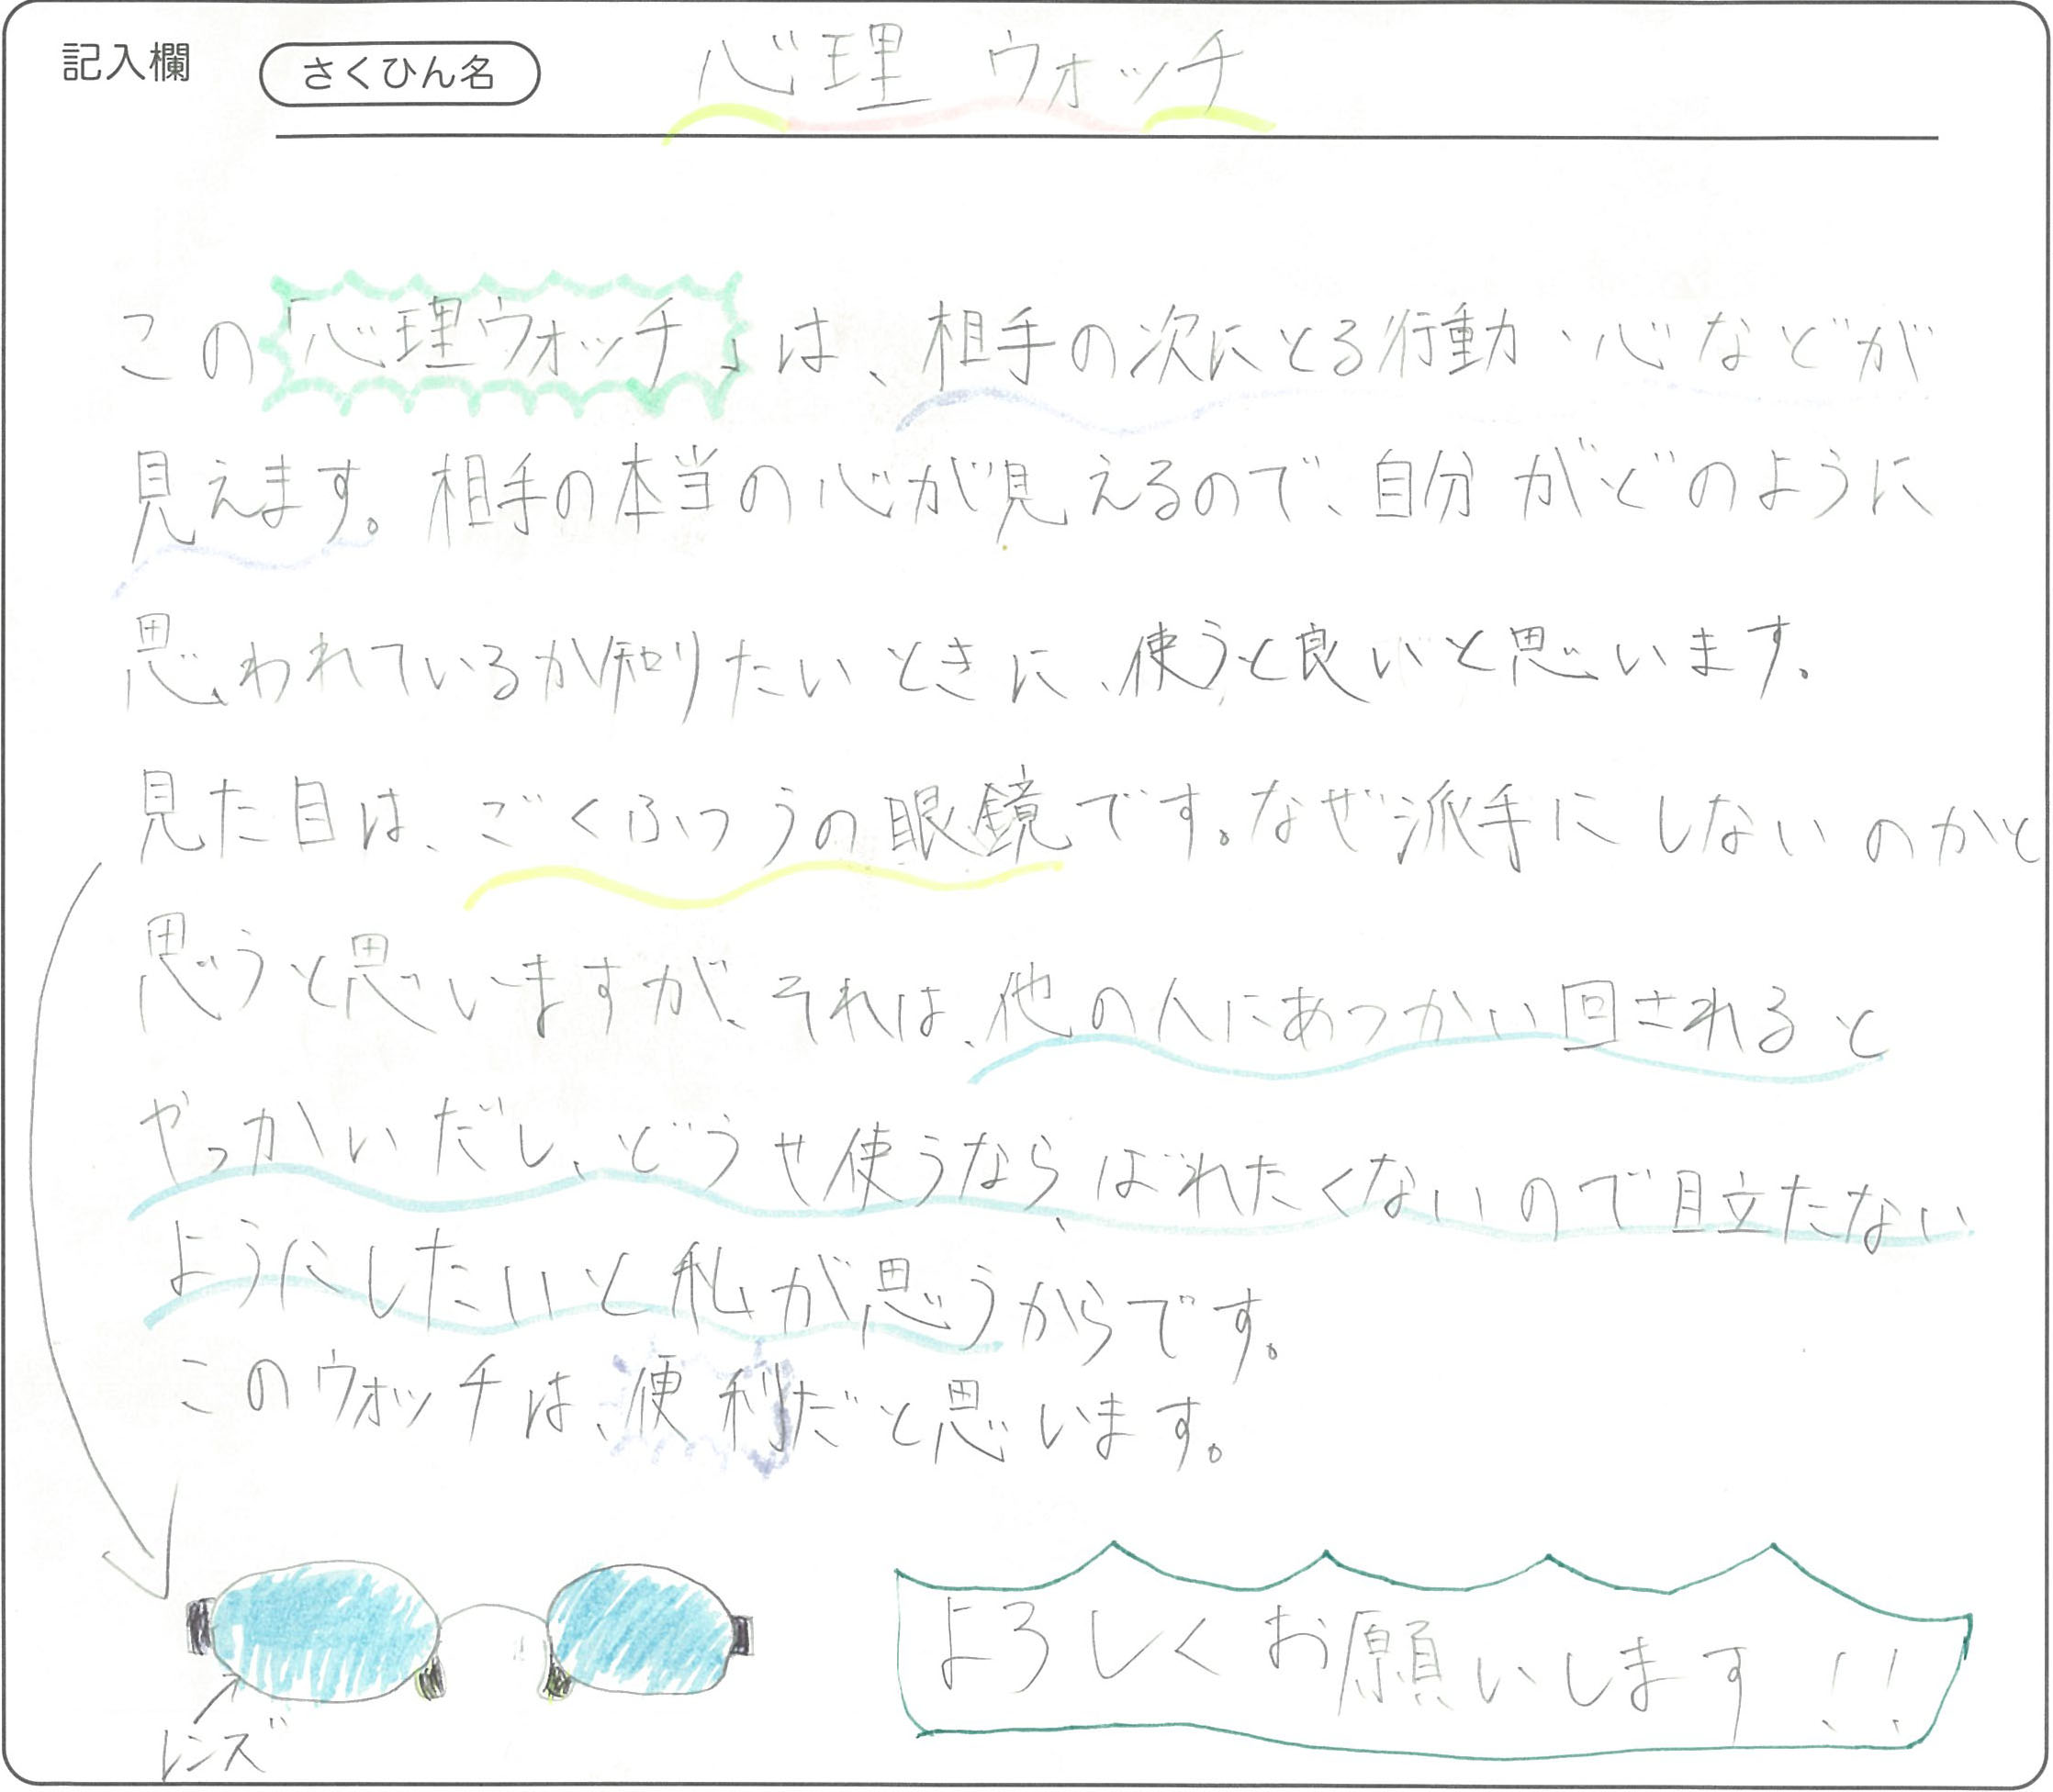 記入欄 さくひん名 心理ウォッチ
この「心理ウォッチ」は、相手の次にとる行動、心などが
見えます。相手の本当の心が見えるので、自分がどのように
思われているか知りたいときに、使うと良いと思います。
見た目は、ごくふつうの眼鏡です。なぜ派手にしないのかと
思うと思いますが、それは、他の人にあつかい回されると
やっかいだし、どうせ使うなら、ばれたくないので目立たない
ようにしたいと私が思うからです。
このウォッチは、便利だと思います。
レンズ
よろしくお願いします!!